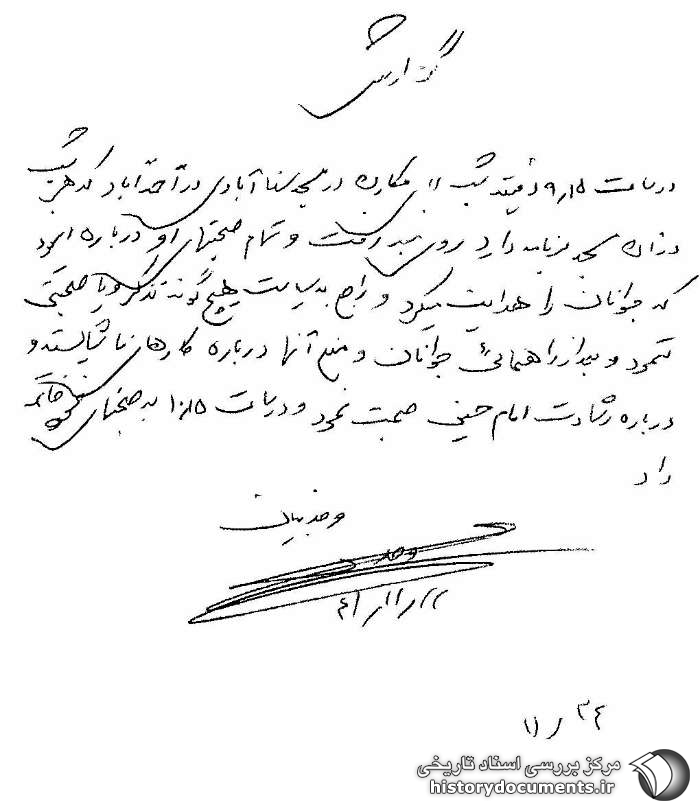 گزارش
در ساعت ۹/۱۵ دقیقه شب آقای مکارم در مسجد سنا آبادی در آخر آباد که هر شب
در آن مسجد برنامه دارد روی منبر رفت و تمام صحبتهای او درباره این بود
که جوانان را هدایت میکرد و راجع به سیاست هیچ گونه تذکر و یا صحبتی
ننمود و بعد از راهنمائی جوانان و منع آنها درباره کارهای ناشایسته و
درباره رشادت امام حسین صحبت نمود و در ساعت ۱۰/۱۵ به صحبتهای خود خاتمه
داد
۳۴ / ۱۱
مرکز بررسی اسناد تاریخی
historydocuments.ir